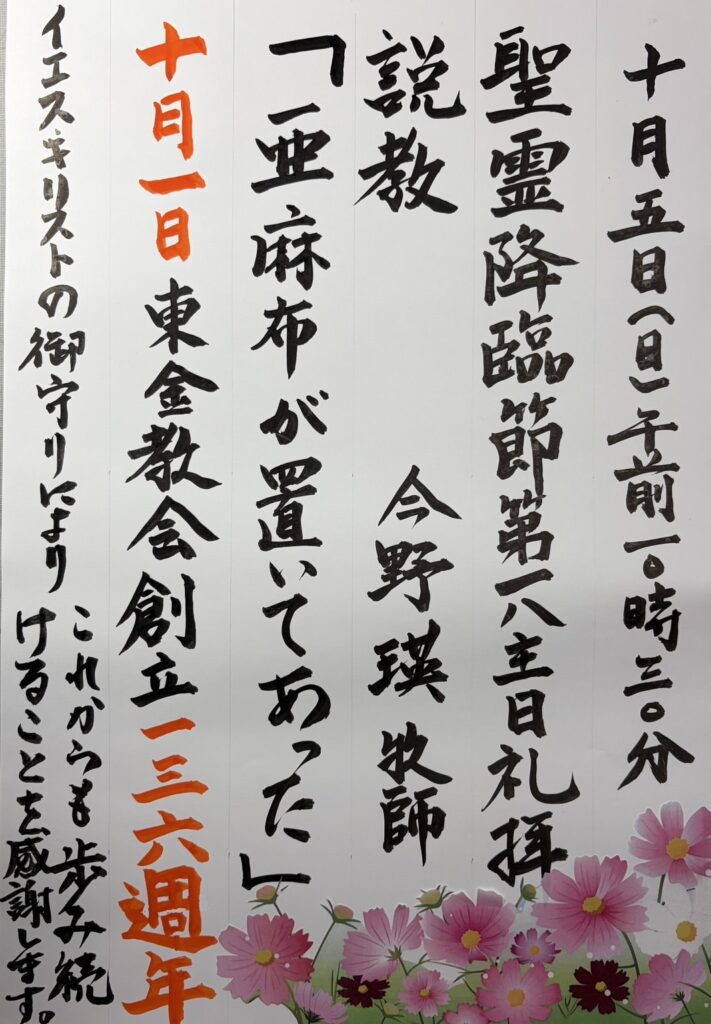 十月五日(日)午前一〇時三〇分
聖霊降臨節第一八主日礼拝
説教 今野瑛 牧師
「亜麻布が置いてあった」
十月一日東金教会創立一三六週年
イエスキリストの御守りにより これからも歩み続
けることを感謝します。